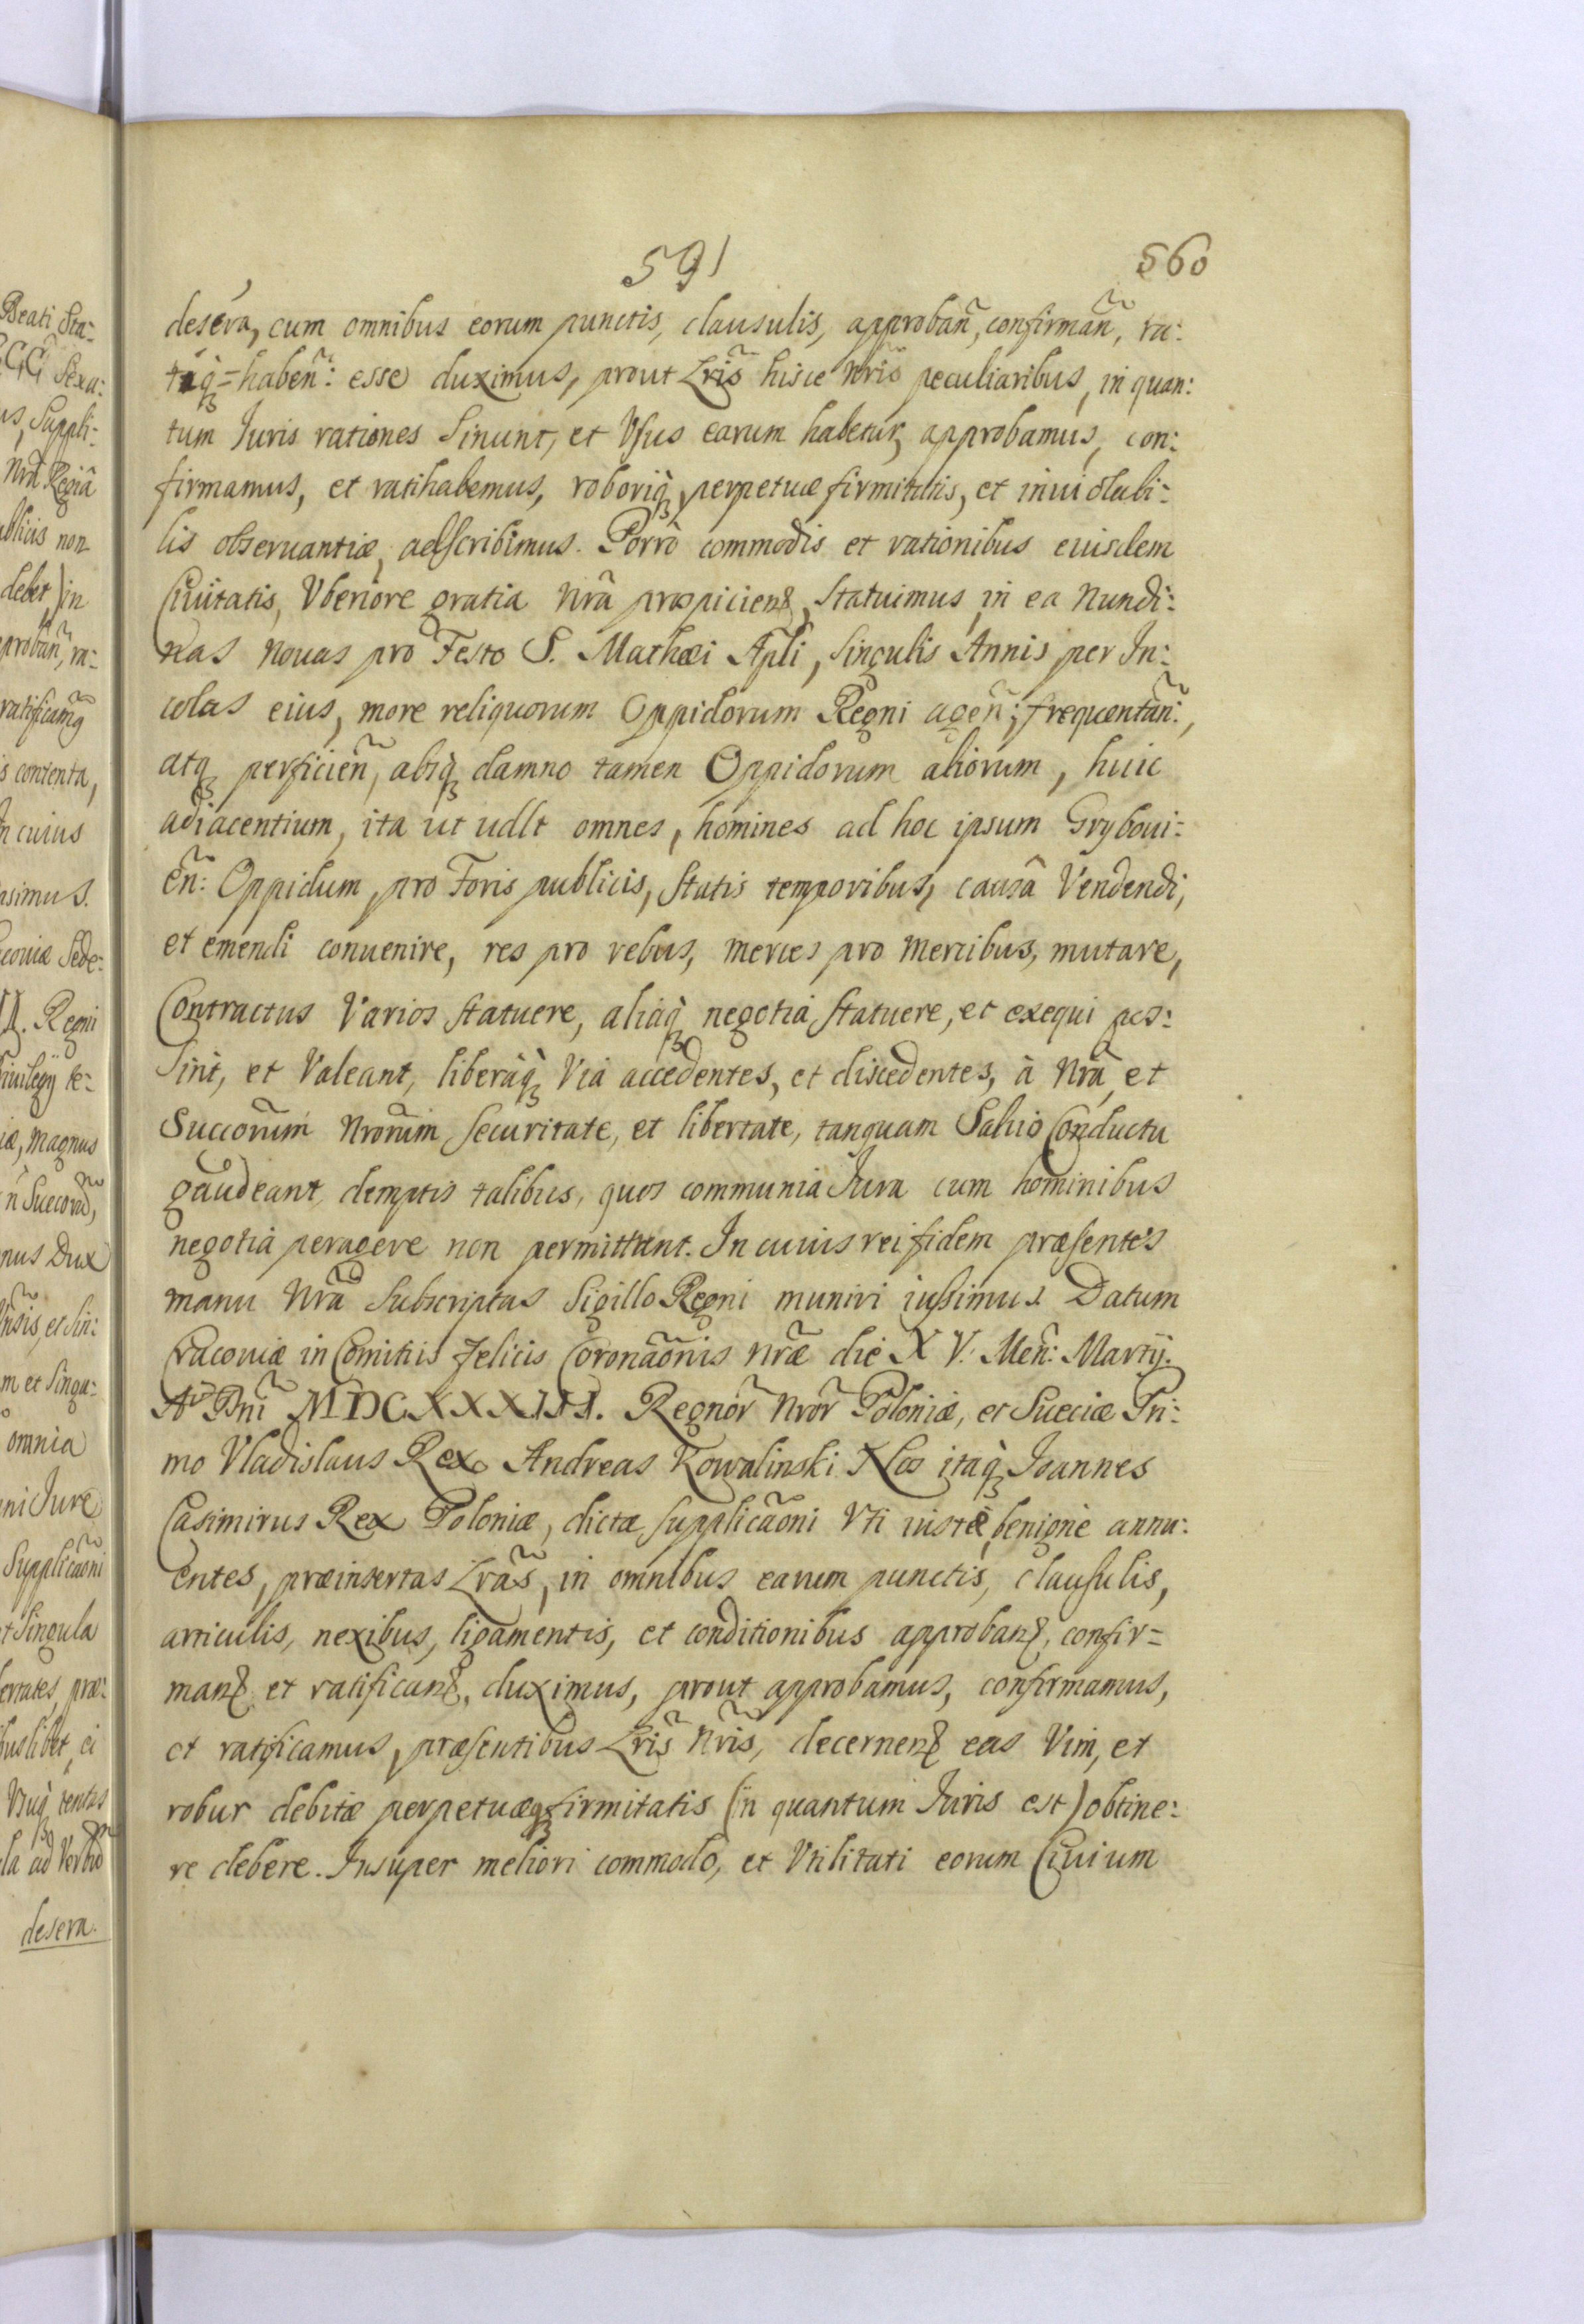 591
560
desera, cum omnibus eorum punctis, clausulis, approbañ, confirmañ, ra:
taq̃=habeñ: esse duximus, prout Lris̃ hisce nris̃ peculiaribus, in quan:
tum Juris rationes Sinunt, et Vsus earum habetur, approbamus, con:
firmamus, et ratihabemus, roboriq̀, perpetuæ firmitatis, et inuiolabi:
lis obseruantiæ, adscribimus. Porrò commodis et rationibus eiusdem
Ciuitatis, Vberiore gratia Nrâ prospicienꝫ, Statuimus, in ea Nundi:
nas nouas pro Festo S. Mathæi Apli, Singulis Annis per In:
colas eius, more reliquorum Oppidorum Regni ageñ; frequentañ:,
atqꝫ perficieñ, absq̀ꝫ damno tamen Oppidorum aliorum, huic
adiacentium, ita ut udlt omnes, homines ad hoc ipsum Gryboui:
eñ: Oppidum, pro Foris publicis, Statis temporibus, causâ Vendendi,
et emendi conuenire, res pro rebus, merces pro mercibus, mutare,
Contractus Varios Statuere, aliaq̀ꝫ negotia Statuere, et exequi pos:
Sint, et Valeant, liberaq̀ꝫ Via accedentes, et discedentes, à Nrã et
Succorum̃ Nrorum̃ Securitate, et libertate, tanquam Saluo Conductu
gaudeant, demptis talibus, quos communia Jura cum hominibus
negotia peragere non permittunt. In cuius rei fidem præsentes
manu Nrã Subscriptas Sigillo Regni muniri iussimus. Datum
Cracouiæ in Comitiis Felicis Coronãonis nræ̃ die XV. Meñ: Martij.
Aº Dnĩ MDCXXXIII. Regnor̃ Nror̃ Poloniæ, et Sueciæ Pri:
mo Vladislaus Rex. Andreas Kowalinski Nos itaq̀ꝫ Joannes
Casimirus Rex Poloniæ, dictæ supplicãoni Vti iustè, benignè annu:
entes, præinsertas Lras̃, in omnibus earum punctis, clausulis,
articulis, nexibus, ligamentis, et conditionibus approbanꝫ, confir=
manꝫ et ratificanꝫ, duximus, prout approbamus, confirmamus,
et ratificamus, præsentibus Lris̃ Nris̃, decernenꝫ eas Vim, et
robur debitæ perpetuæqꝫ firmitatis (in quantum Juris est) obtine:
re debere. Insuper meliori commodo, et Vtilitati eorum Ciuium